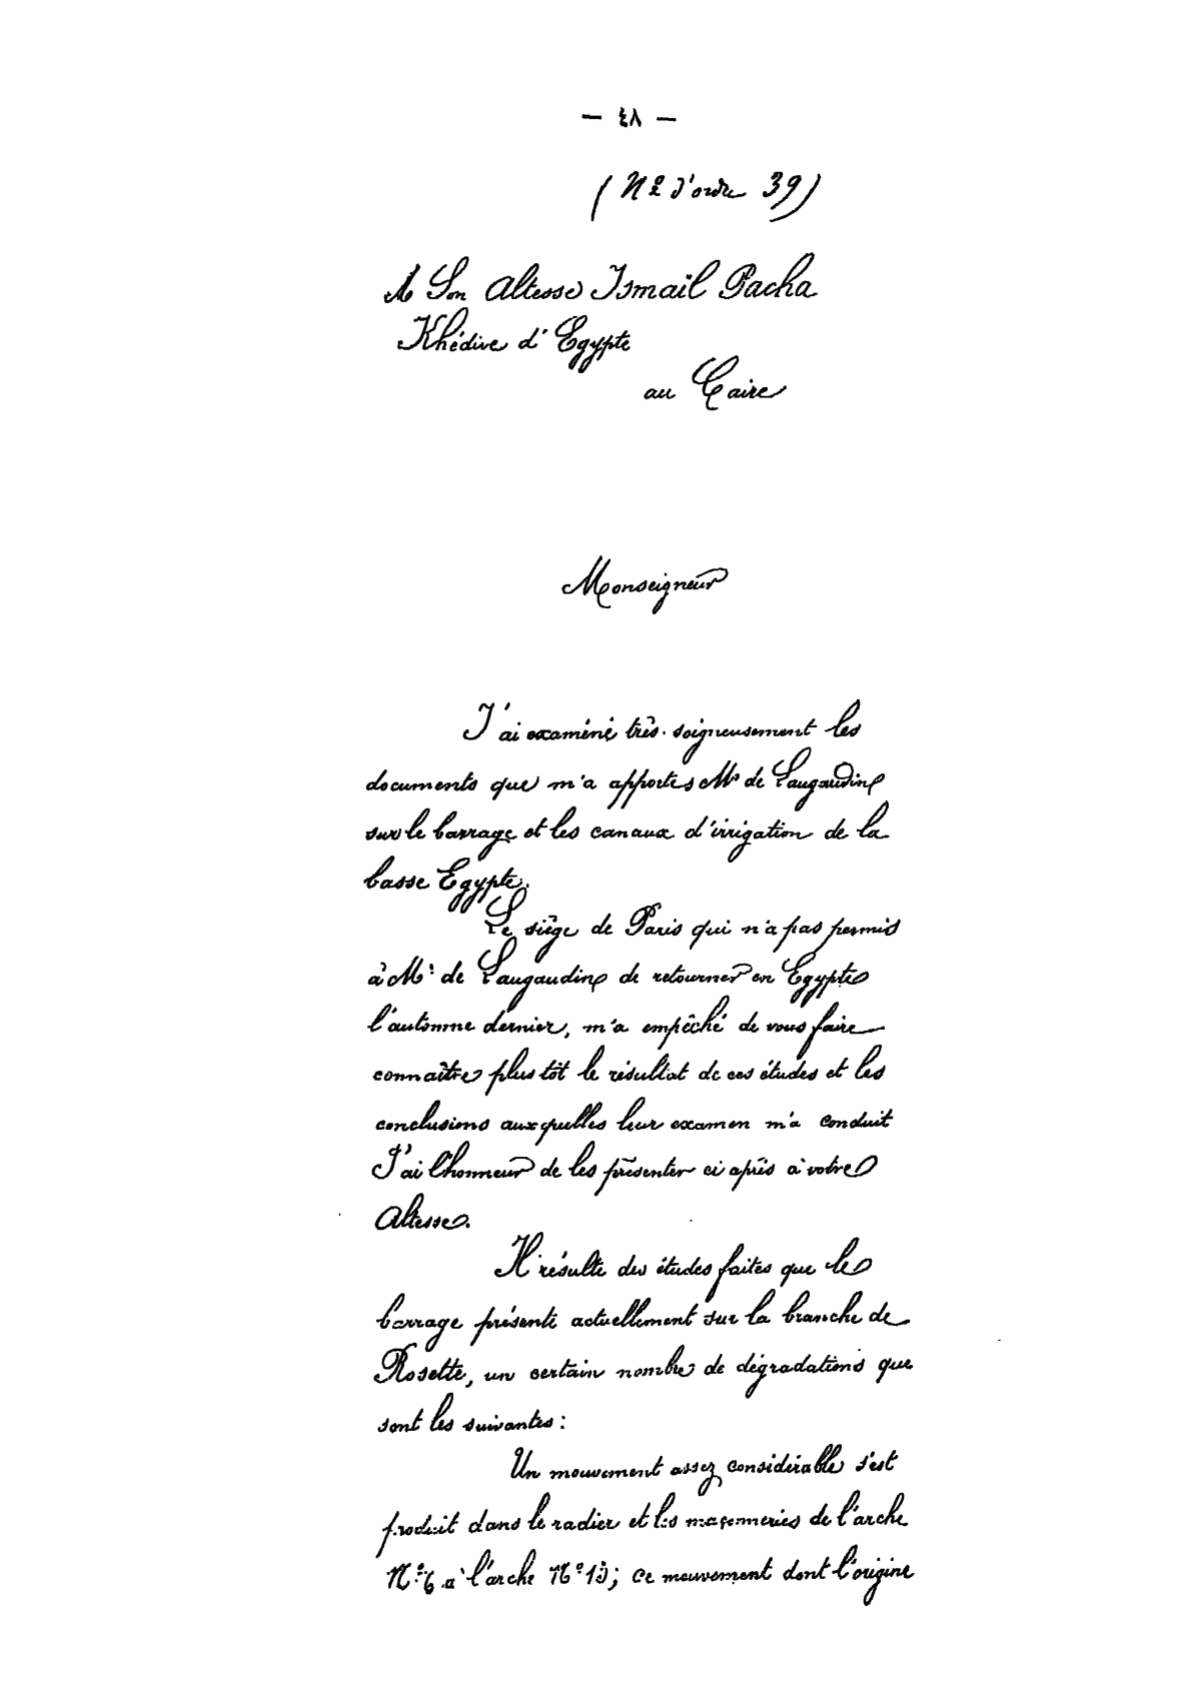 — ٤٨ —
(Nº d'ordre 39)
A Son Altesse Ismaïl Pacha
Khédive d'Egypte
au Caire
Monseigneur
J'ai examiné très-soigneusement les
documents que m'a apportés Mr de Laugaudin
sur le barrage et les canaux d'irrigation de la
basse Egypte.
Le siège de Paris qui n'a pas permis
à Mr de Laugaudin de retourner en Egypte
l'automne dernier, m'a empêché de vous faire
connaître plus tôt le résultat de ces études et les
conclusions auxquelles leur examen m'a conduit
J'ai l'honneur de les présenter ci après à votre
Altesse.
Il résulte des études faites que le
barrage présente actuellement sur la branche de
Rosette, un certain nombre de dégradations que
sont les suivantes :
Un mouvement assez considérable s'est
produit dans le radier et les maçonneries de l'arche
Nº 6 a l'arche Nº ; ce mouvement dont l'origine